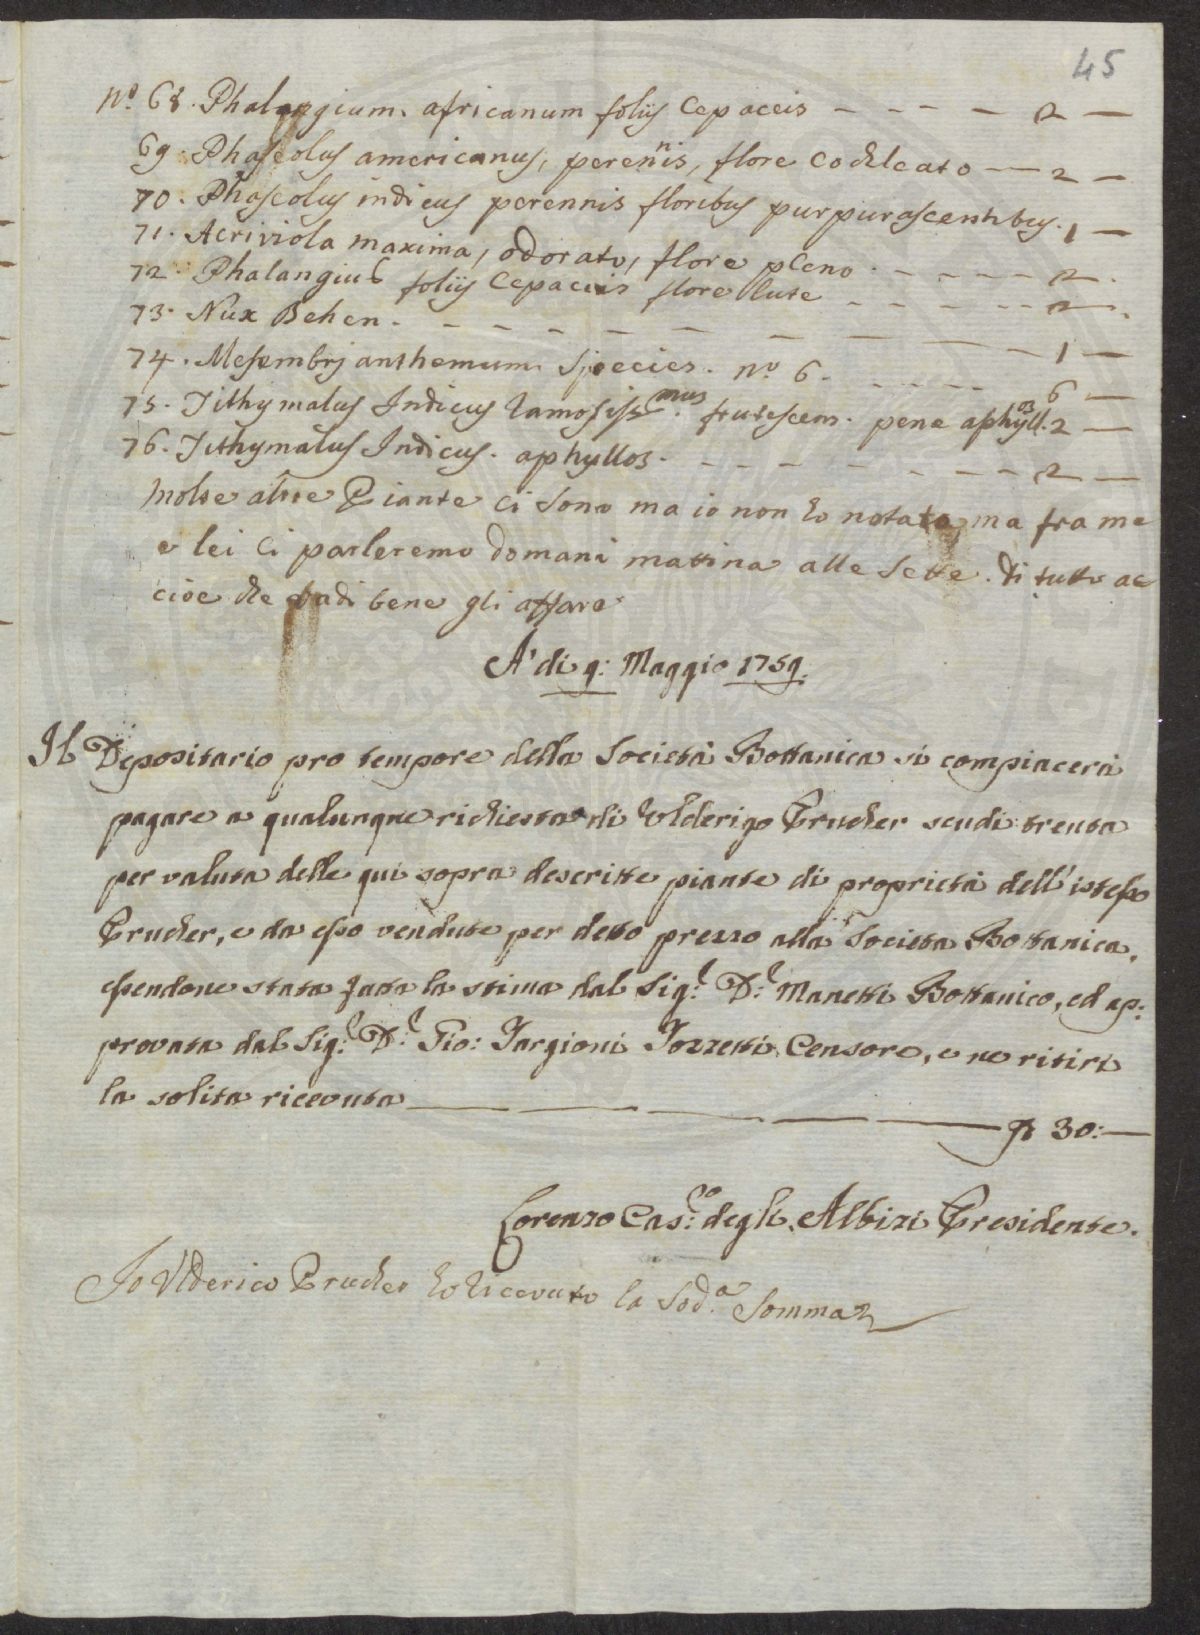 45
N.º 68. Phalangium africanum foliis Cepaceis - - - - 2 -
69. Phaseolus americanus, perennis, flore Cochleato - 2 -
70. Phaseolus indicus perennis floribus purpurascentibus. 1 -
71. Acriviola maxima, odorato, flore pleno. - - - - 2.
72. Phalangius foliis Cepaciis flore lute - - - - - 2 -.
73. Nux Behen. - - - - - - - - 1 -
74. Mesembrjanthemum species. nº 6. - - - - - 6 -
75. Tithymalus Indicus ramosiss.mus frutescem. pene aphyll.os 2 -
76. Tithymalus Indicus. aphyllos. - - - - - - - - 2 -
Molte altre Piante ci sono ma io non ho notato ma fra me
e lei ci parleremo domani mattina alle sette. di tutto ac
cioe che vadi bene gli affare
A' di 9: Maggio 1759.
Il Depositario pro tempore della Società Bottanica si compiacerà
pagare a qualunque richiesta di Ulderigo Prucher scudi trenta
per valuta delle qui sopra descritte piante di proprietà dell'istesso
Prucher, e da esso vendute per detto prezzo alla Societa Bottanica,
essendone stata fatta la stima dal Sig.r D.r Manetti Bottanico, ed ap:
provata dal Sig.r D.r Gio: Targioni Tozzetti Censore, e ne ritiri
la solita ricevuta - - - - - - 30: -
Lorenzo Cas.co degli Albizi Presidente.
Io Ulderico Prucher ho ricevuto la Sod.a Somma